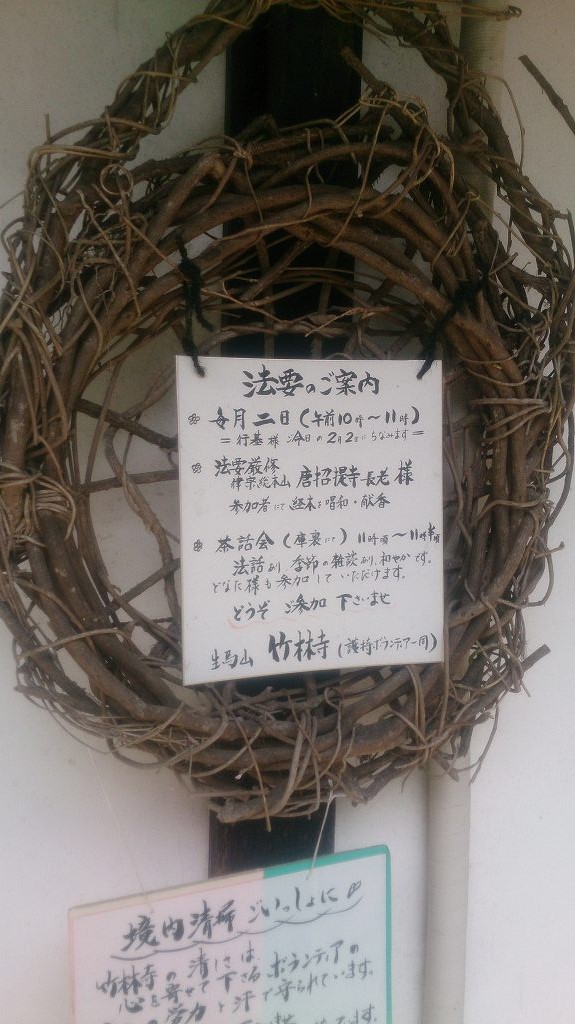 法要のご案内
毎月二日(午前10時〜11時)
=行基様ご命日の2月2日にちなみます=
法要厳修
律宗総本山 唐招提寺長老様
参加者にて経本を唱和・献香
茶話会(庫裏にて)11時頃〜11時半頃
法話あり、季節の雑談あり、和やかです。
どなた様も参加していただけます。
どうぞ ご参加 下さいませ
生馬山 竹林寺(護持ボランティア一同)
境内清掃 ごいっしょに
竹林寺の清しさは、ボランティアの
心を寄せて下さる
と汗で守られています。